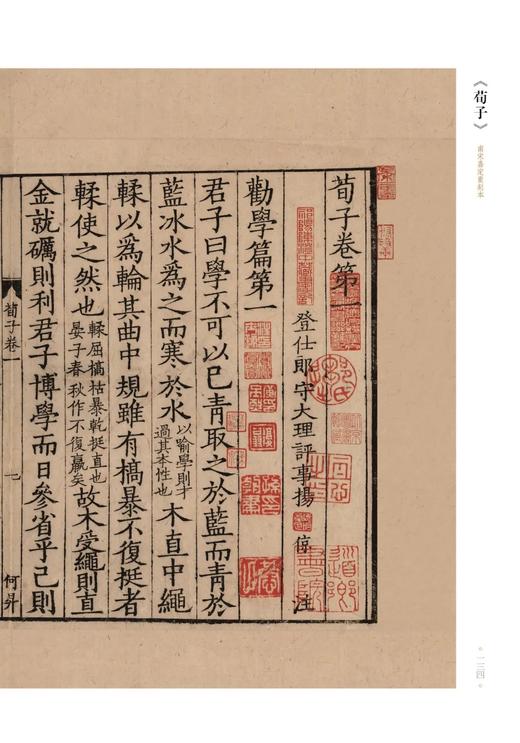 《荀子》
南宋嘉定重刻本
荀子卷第一
登仕郎守大理評事揚 倞 注
勸學篇第一
君子曰學不可以已青取之於藍而青於
藍冰水為之而寒於水以喻學則才過其本性也木直中繩
輮以為輪其曲中規雖有槁暴不復挺者
輮使之然也輮屈槁枯暴乾挺直也晏子春秋作不復贏矣故木受繩則直
金就礪則利君子博學而日參省乎己則
荀子卷一
七
何昇
一三四